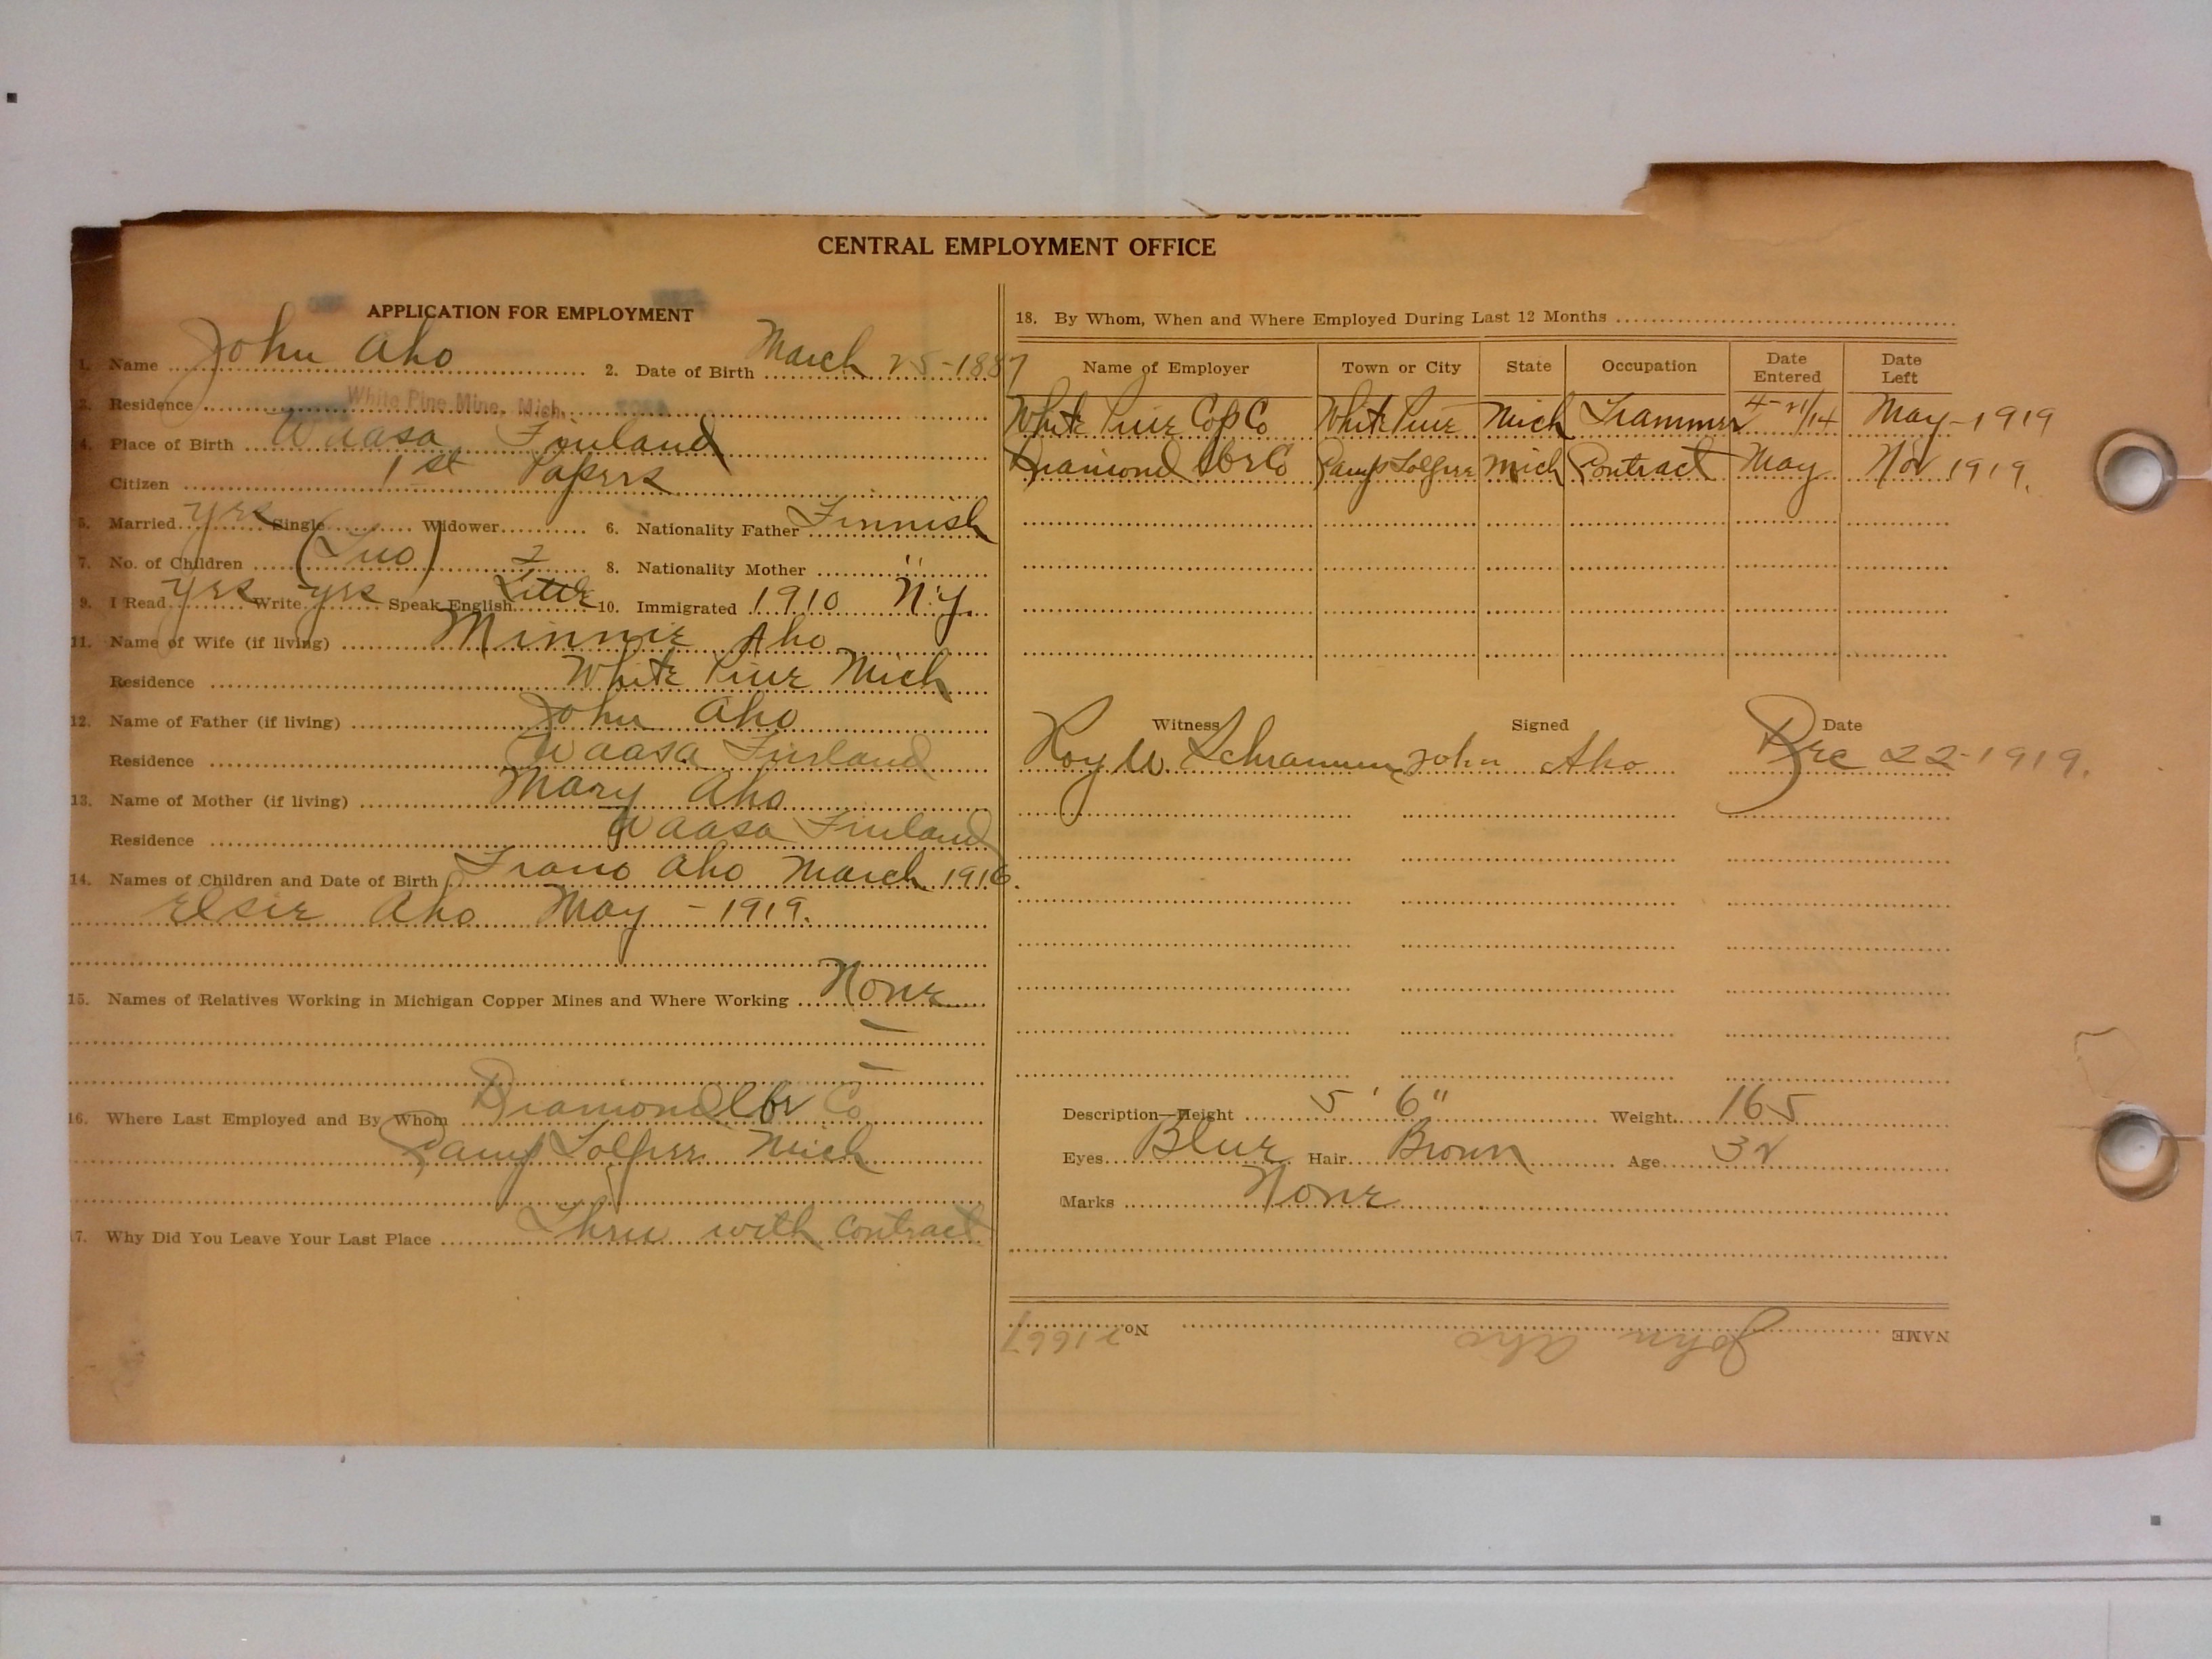 AND SUBSIDIARIES
CENTRAL EMPLOYMENT OFFICE
APPLICATION FOR EMPLOYMENT
1. Name John Aho 2. Date of Birth March 25-1887
3. Residence White Pine Mine, Mich.
4. Place of Birth Waasa Finland
Citizen 1st Papers
5. Married yes Single Widower 6. Nationality Father Finnish
7. No. of Children (Two) 2 8. Nationality Mother "
9. I Read yes Write yes Speak English Little 10. Immigrated 1910 N.Y.
11. Name of Wife (if living) Minnie Aho
Residence White Pine Mich
12. Name of Father (if living) John Aho
Residence Waasa Finland
13. Name of Mother (if living) Mary Aho
Residence Waasa Finland
14. Names of Children and Date of Birth Aho March 1916.
Elsie Aho May - 1919.
15. Names of Relatives Working in Michigan Copper Mines and Where Working None
16. Where Last Employed and By Whom Diamond Lbr Co
Camp Mich
17. Why Did You Leave Your Last Place Thru with contract
18. By Whom, When and Where Employed During Last 12 Months
Name of Employer Town or City State Occupation Date Entered Date Left
White Pine Cop Co White Pine Mich Trammer 4-21/14 May-1919
Diamond Lbr Co Camp Mich Contract May Nov 1919.
Witness Signed Date
Roy W. Schramm John Aho Dec 22-1919.
Description—Height 5' 6" Weight 165
Eyes Blue Hair Brown Age 32
Marks None
NAME John Aho No. 21667